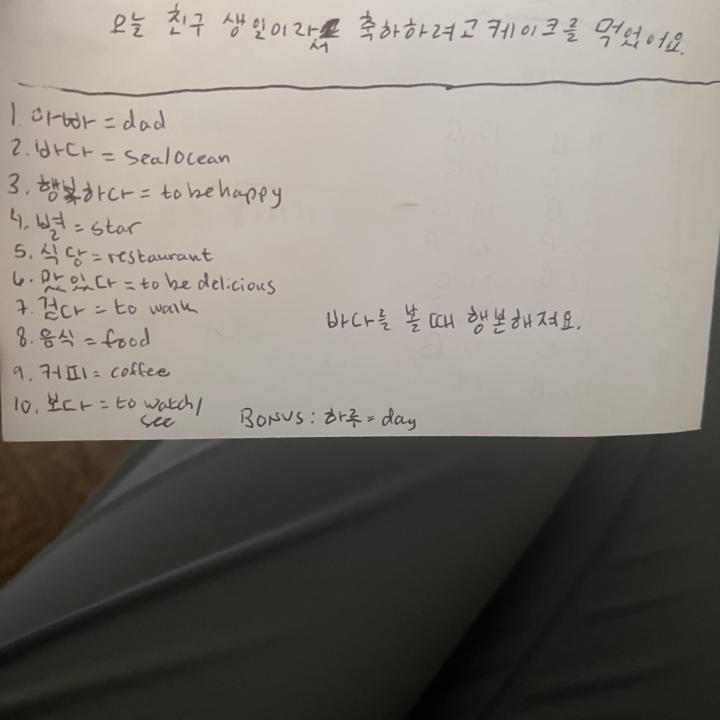 오늘 친구 생일이라서 축하하려고 케이크를 먹었어요.
1. 아빠 = dad
2. 바다 = sea/ocean
3. 행복하다 = to be happy
4. 별 = star
5. 식당 = restaurant
6. 맜있다 = to be delicious
7. 걷다 = to walk
8. 음식 = food
바다를 볼 때 행복해져요.
9. 커피 = coffee
10. 보다 = to watch/
see
BONUS: 하루 = day